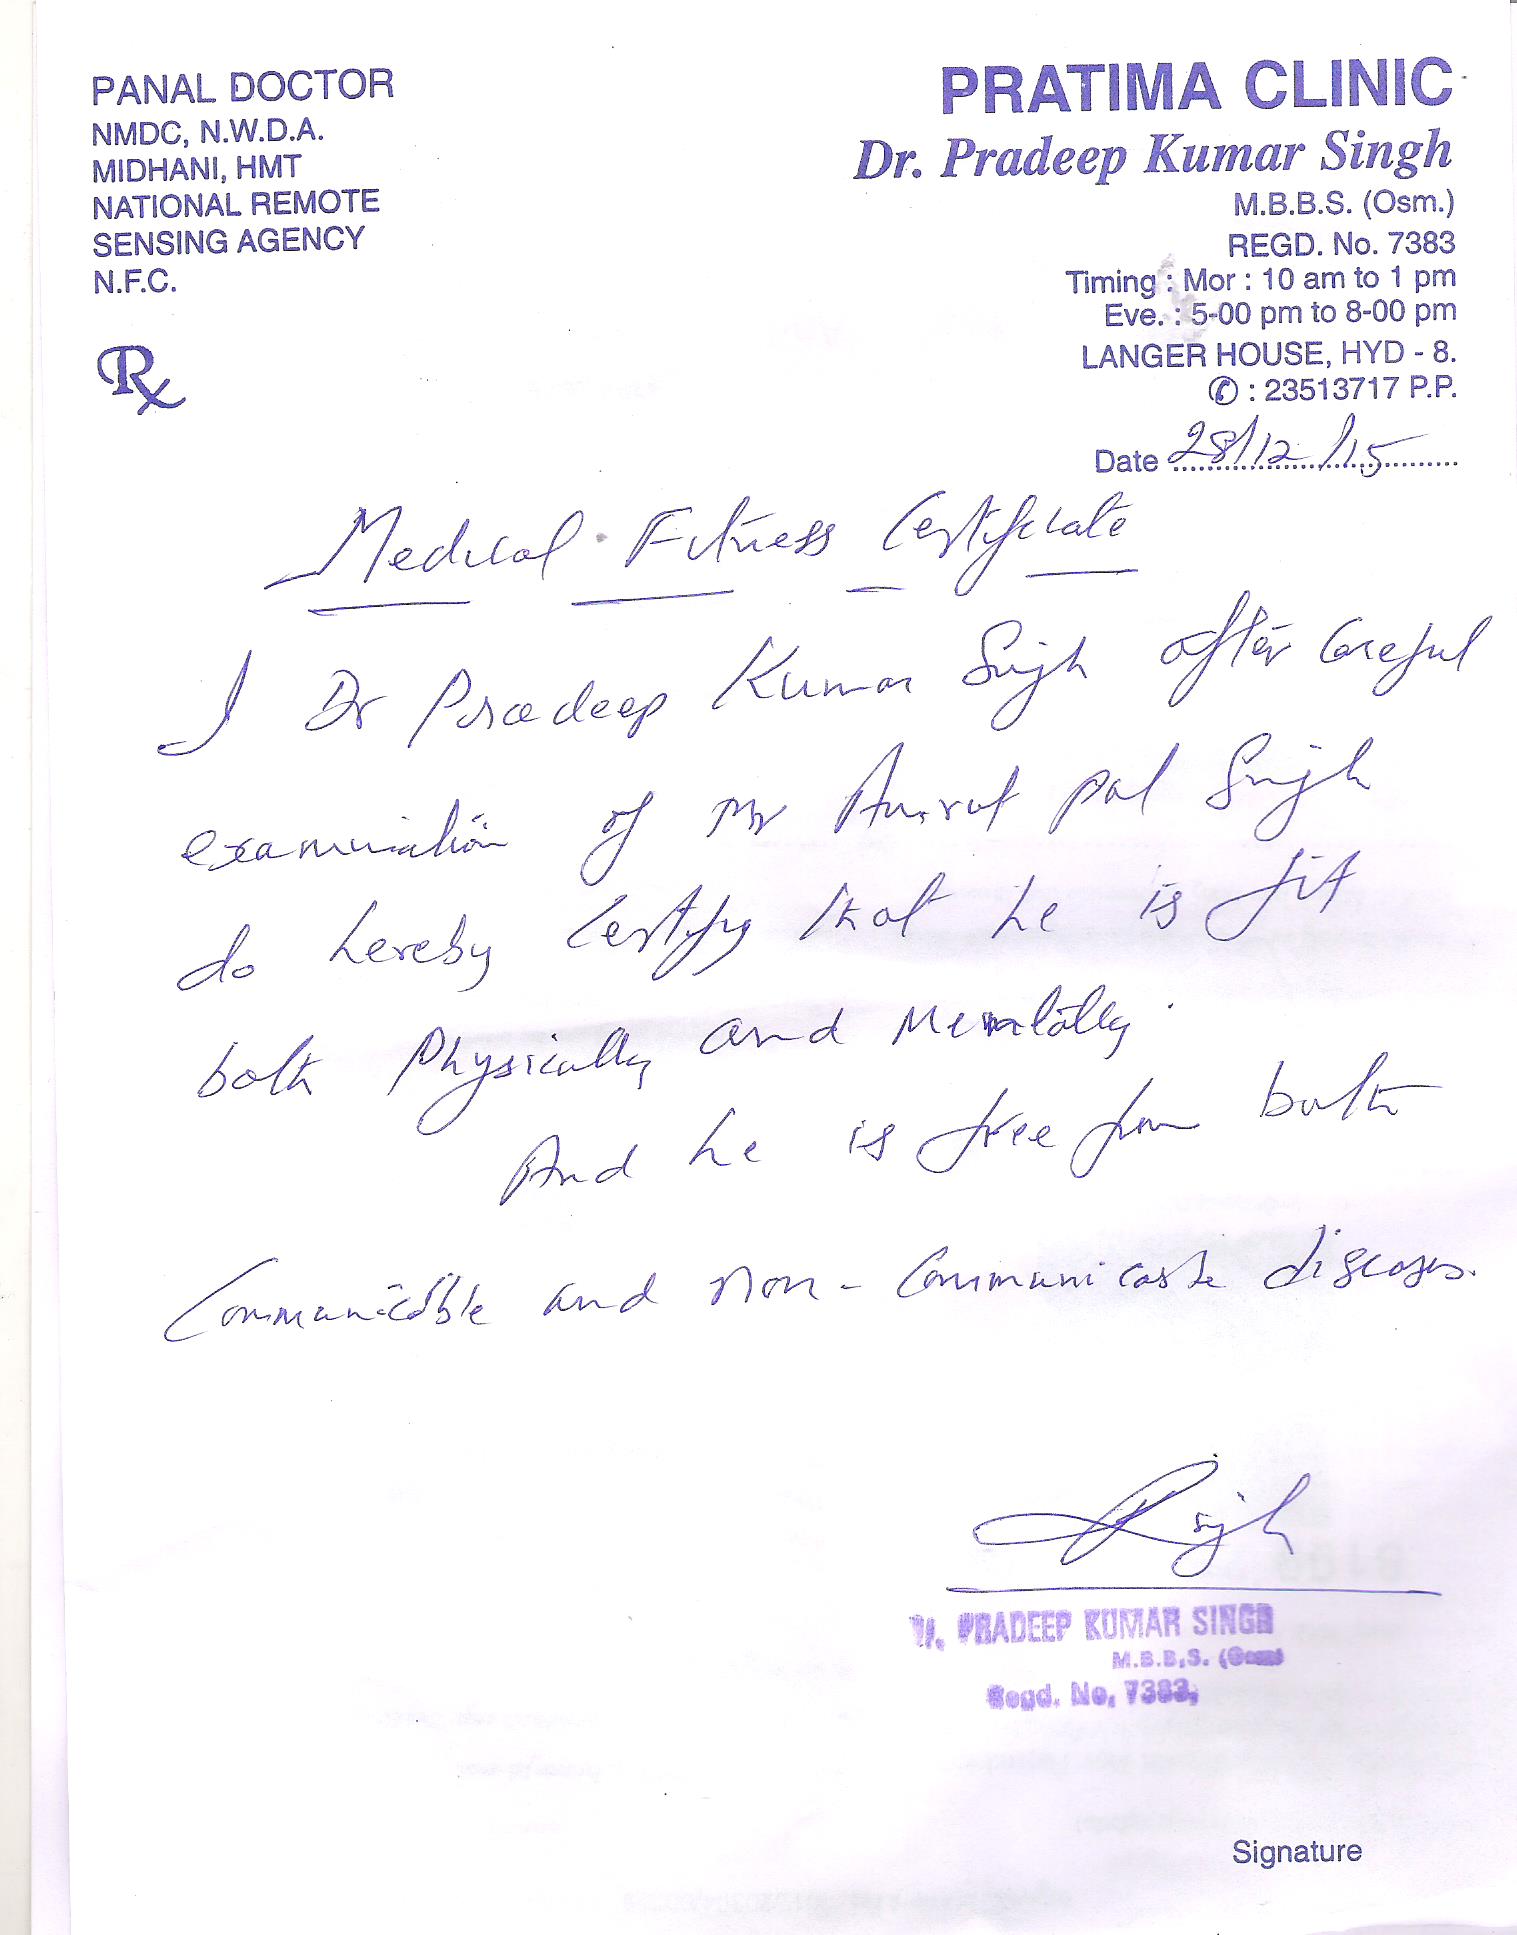 PANAL DOCTOR
NMDC, N.W.D.A.
MIDHANI, HMT
NATIONAL REMOTE
SENSING AGENCY
N.F.C.
℞
PRATIMA CLINIC
Dr. Pradeep Kumar Singh
M.B.B.S. (Osm.)
REGD. No. 7383
Timing : Mor : 10 am to 1 pm
Eve. : 5-00 pm to 8-00 pm
LANGER HOUSE, HYD - 8.
✆ : 23513717 P.P.
Date 28/12/15
Medical Fitness Certificate
I Dr Pradeep Kumar Singh after careful
examination of Mr Amrut pal Singh
do hereby certify that he is fit
both Physically and Mentally.
And he is free from both
Communicable and non-communicable diseases.
Singh
Dr. PRADEEP KUMAR SINGH
M.B.B.S. (Osm)
Regd. No. 7383,
Signature